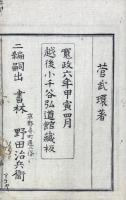 菅武環著
寛政六年甲寅四月
越後小千谷弘道館蔵板
二編嗣出
書林
野田治兵衛